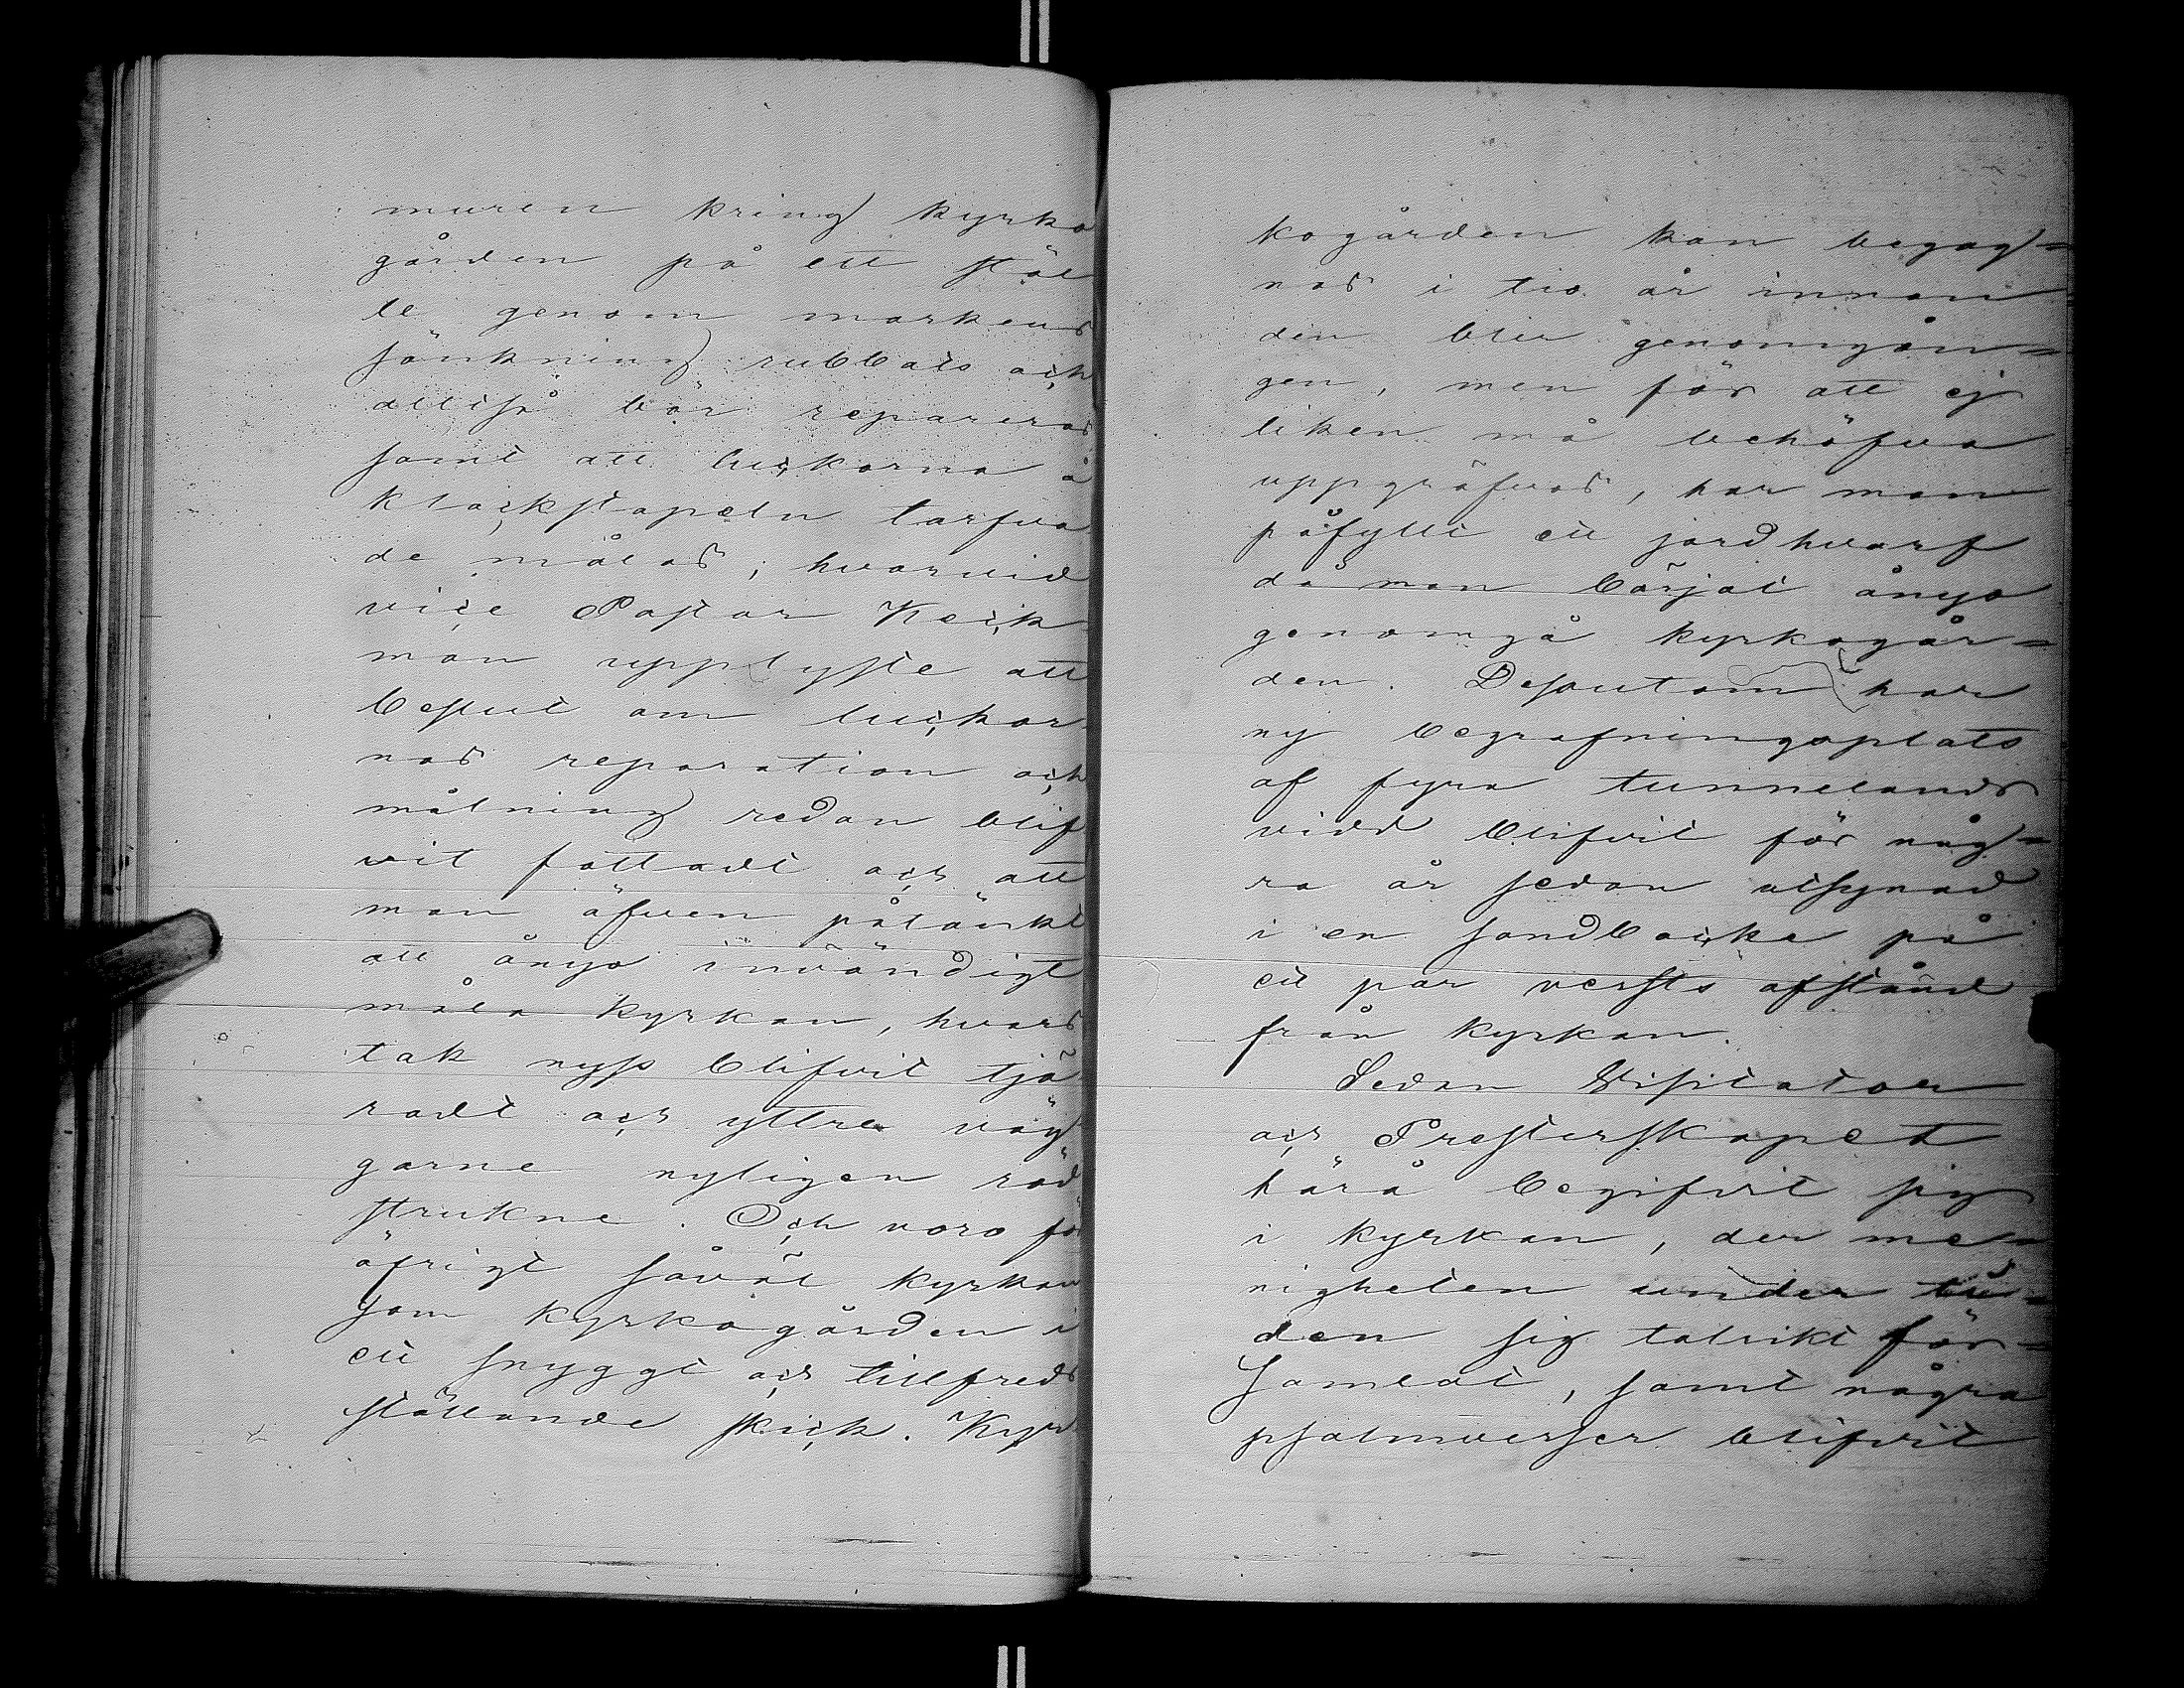 muren kring kyrko
gården på ett stäl
le genom markens
sänkning rubbats och
alltså bör repareras
samt att luckorna å
klockstapeln tarfva
de målas; hvarvid
vice Pastor Keck
man upplyste att
beslut om luckor
nas reparation och
målning redan blif
vit fattadt och att
man äfven påtänkt
att ånyo invändigt
måla kyrkan, hvars
tak nyss blifvit tjä
radt och yttre väg
garne nyligen röd
strukne. Och voro för
öfrigt såväl kyrkan
som kyrkogården i
ett snyggt och tillfreds
ställande skick. Kyr
kogården kan begag=
nas i tio år innan
den blir genomgån=
gen, men för att ej
liken må behöfva
uppgräfvas, har man
påfyllt ett jordhvarf
då man börjat ånyo
genomgå kyrkogår=
den. Dessutom har
ny begrafningsplats
af fyra tunnelands
vidd blifvit för någ=
ra år sedan utsynad
i en sandbacke på
ett par versts afstånd
från kyrkan.
Sedan Visitator
och Presterskapet
härå begifvit sig
i kyrkan, der me=
nigheten under ti=
den sig talrikt för=
samlat, samt några
psalmverser blifvit